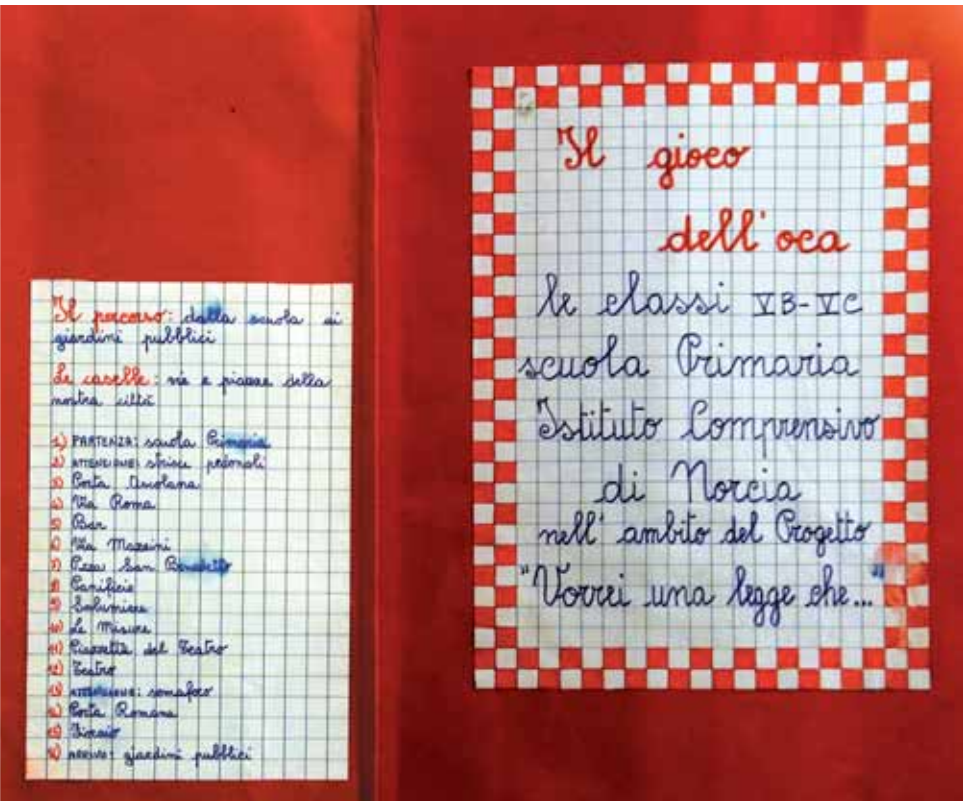 Il percorso: dalla scuola ai
giardini pubblici
Le caselle: vie e piazze della
nostra città
1) PARTENZA: scuola Primaria
2) ATTENZIONE: strisce pedonali
3) Porta Ascolana
4) Via Roma
5) Bar
6) Via Mazzini
7) P.zza San Benedetto
8) Panificio
9) Salumiere
10) Le Misure
11) Piazzetta del Teatro
12) Teatro
13) ATTENZIONE: semaforo
14) Porta Romana
15) Fioraio
16) ARRIVO: giardini pubblici
Il gioco
dell'oca
le classi VB-VC
scuola Primaria
Istituto Comprensivo
di Norcia
nell'ambito del Progetto
"Vorrei una legge che..."